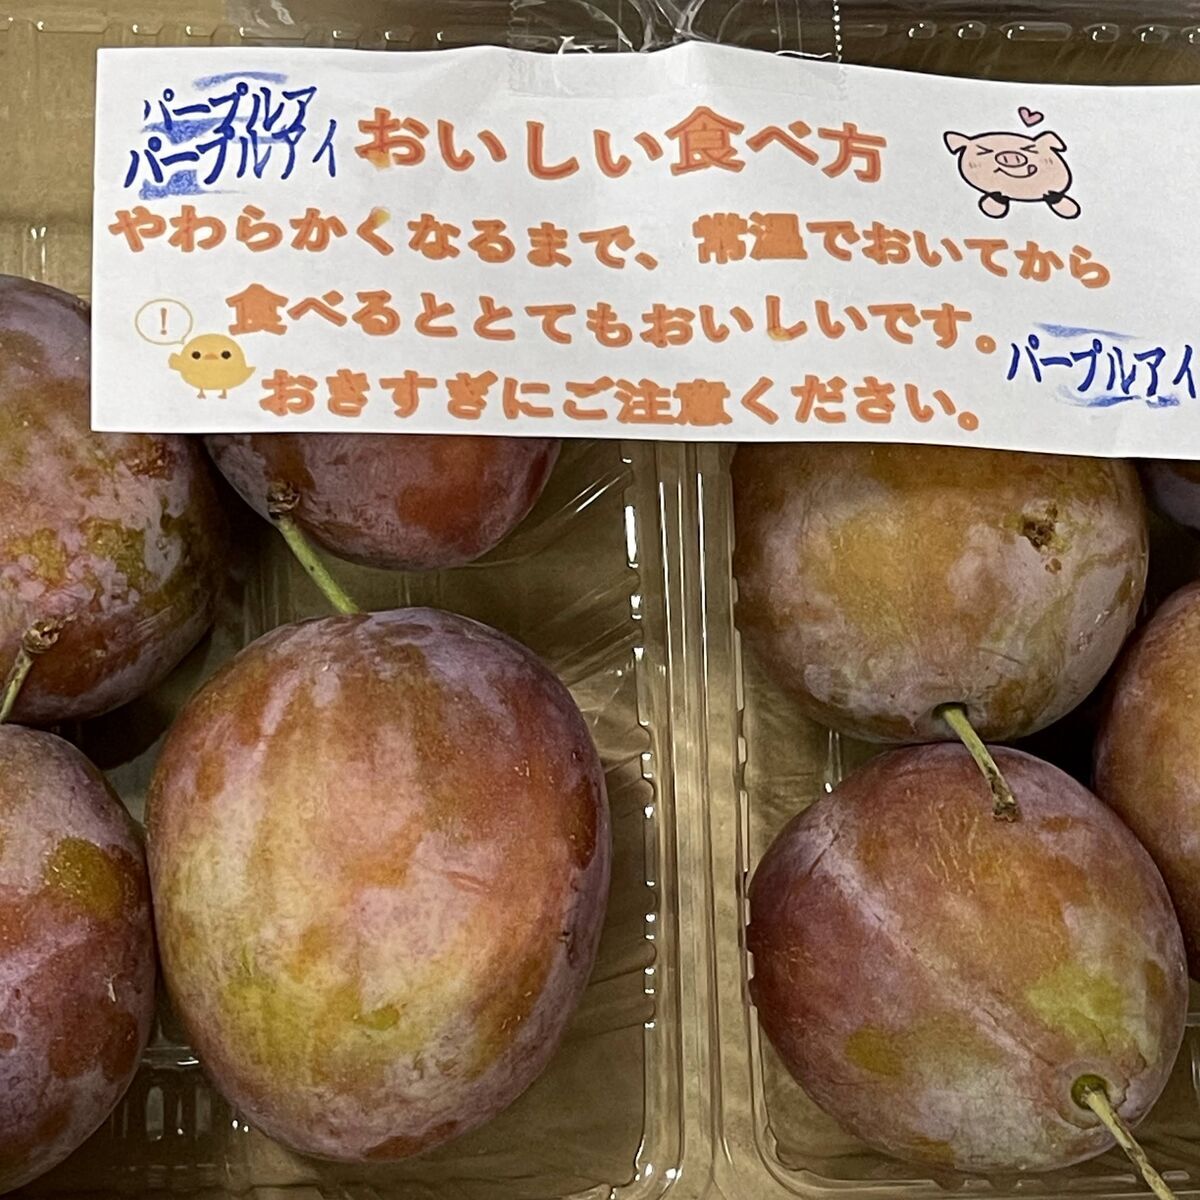 パープルア
パープルアイ
おいしい食べ方
やわらかくなるまで、常温でおいてから
!
食べるととてもおいしいです。
おきすぎにご注意ください。
パープルアイ